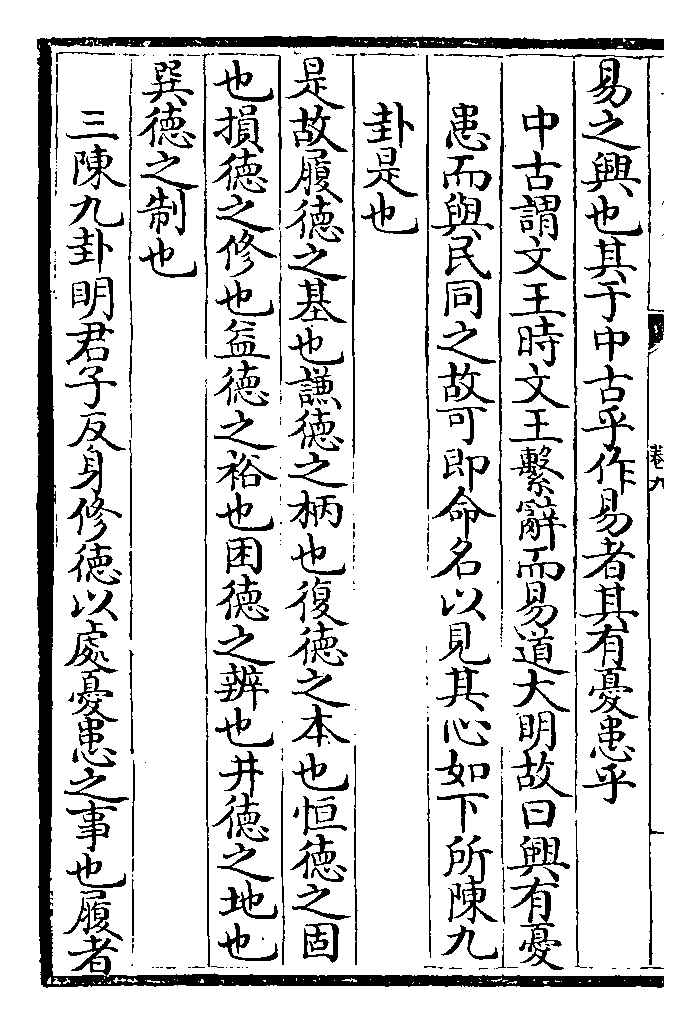 易之興也其于中古乎作易者其有憂患乎
中古謂文王時文王繫辭而易道大明故曰興有憂
患而與民同之故可即命名以見其心如下所陳九
卦是也
是故履德之基也謙德之柄也復德之本也恒德之固
也損德之修也益德之裕也困德之辨也井德之地也
巽德之制也
三陳九卦明君子反身修德以處憂患之事也履者
卷九